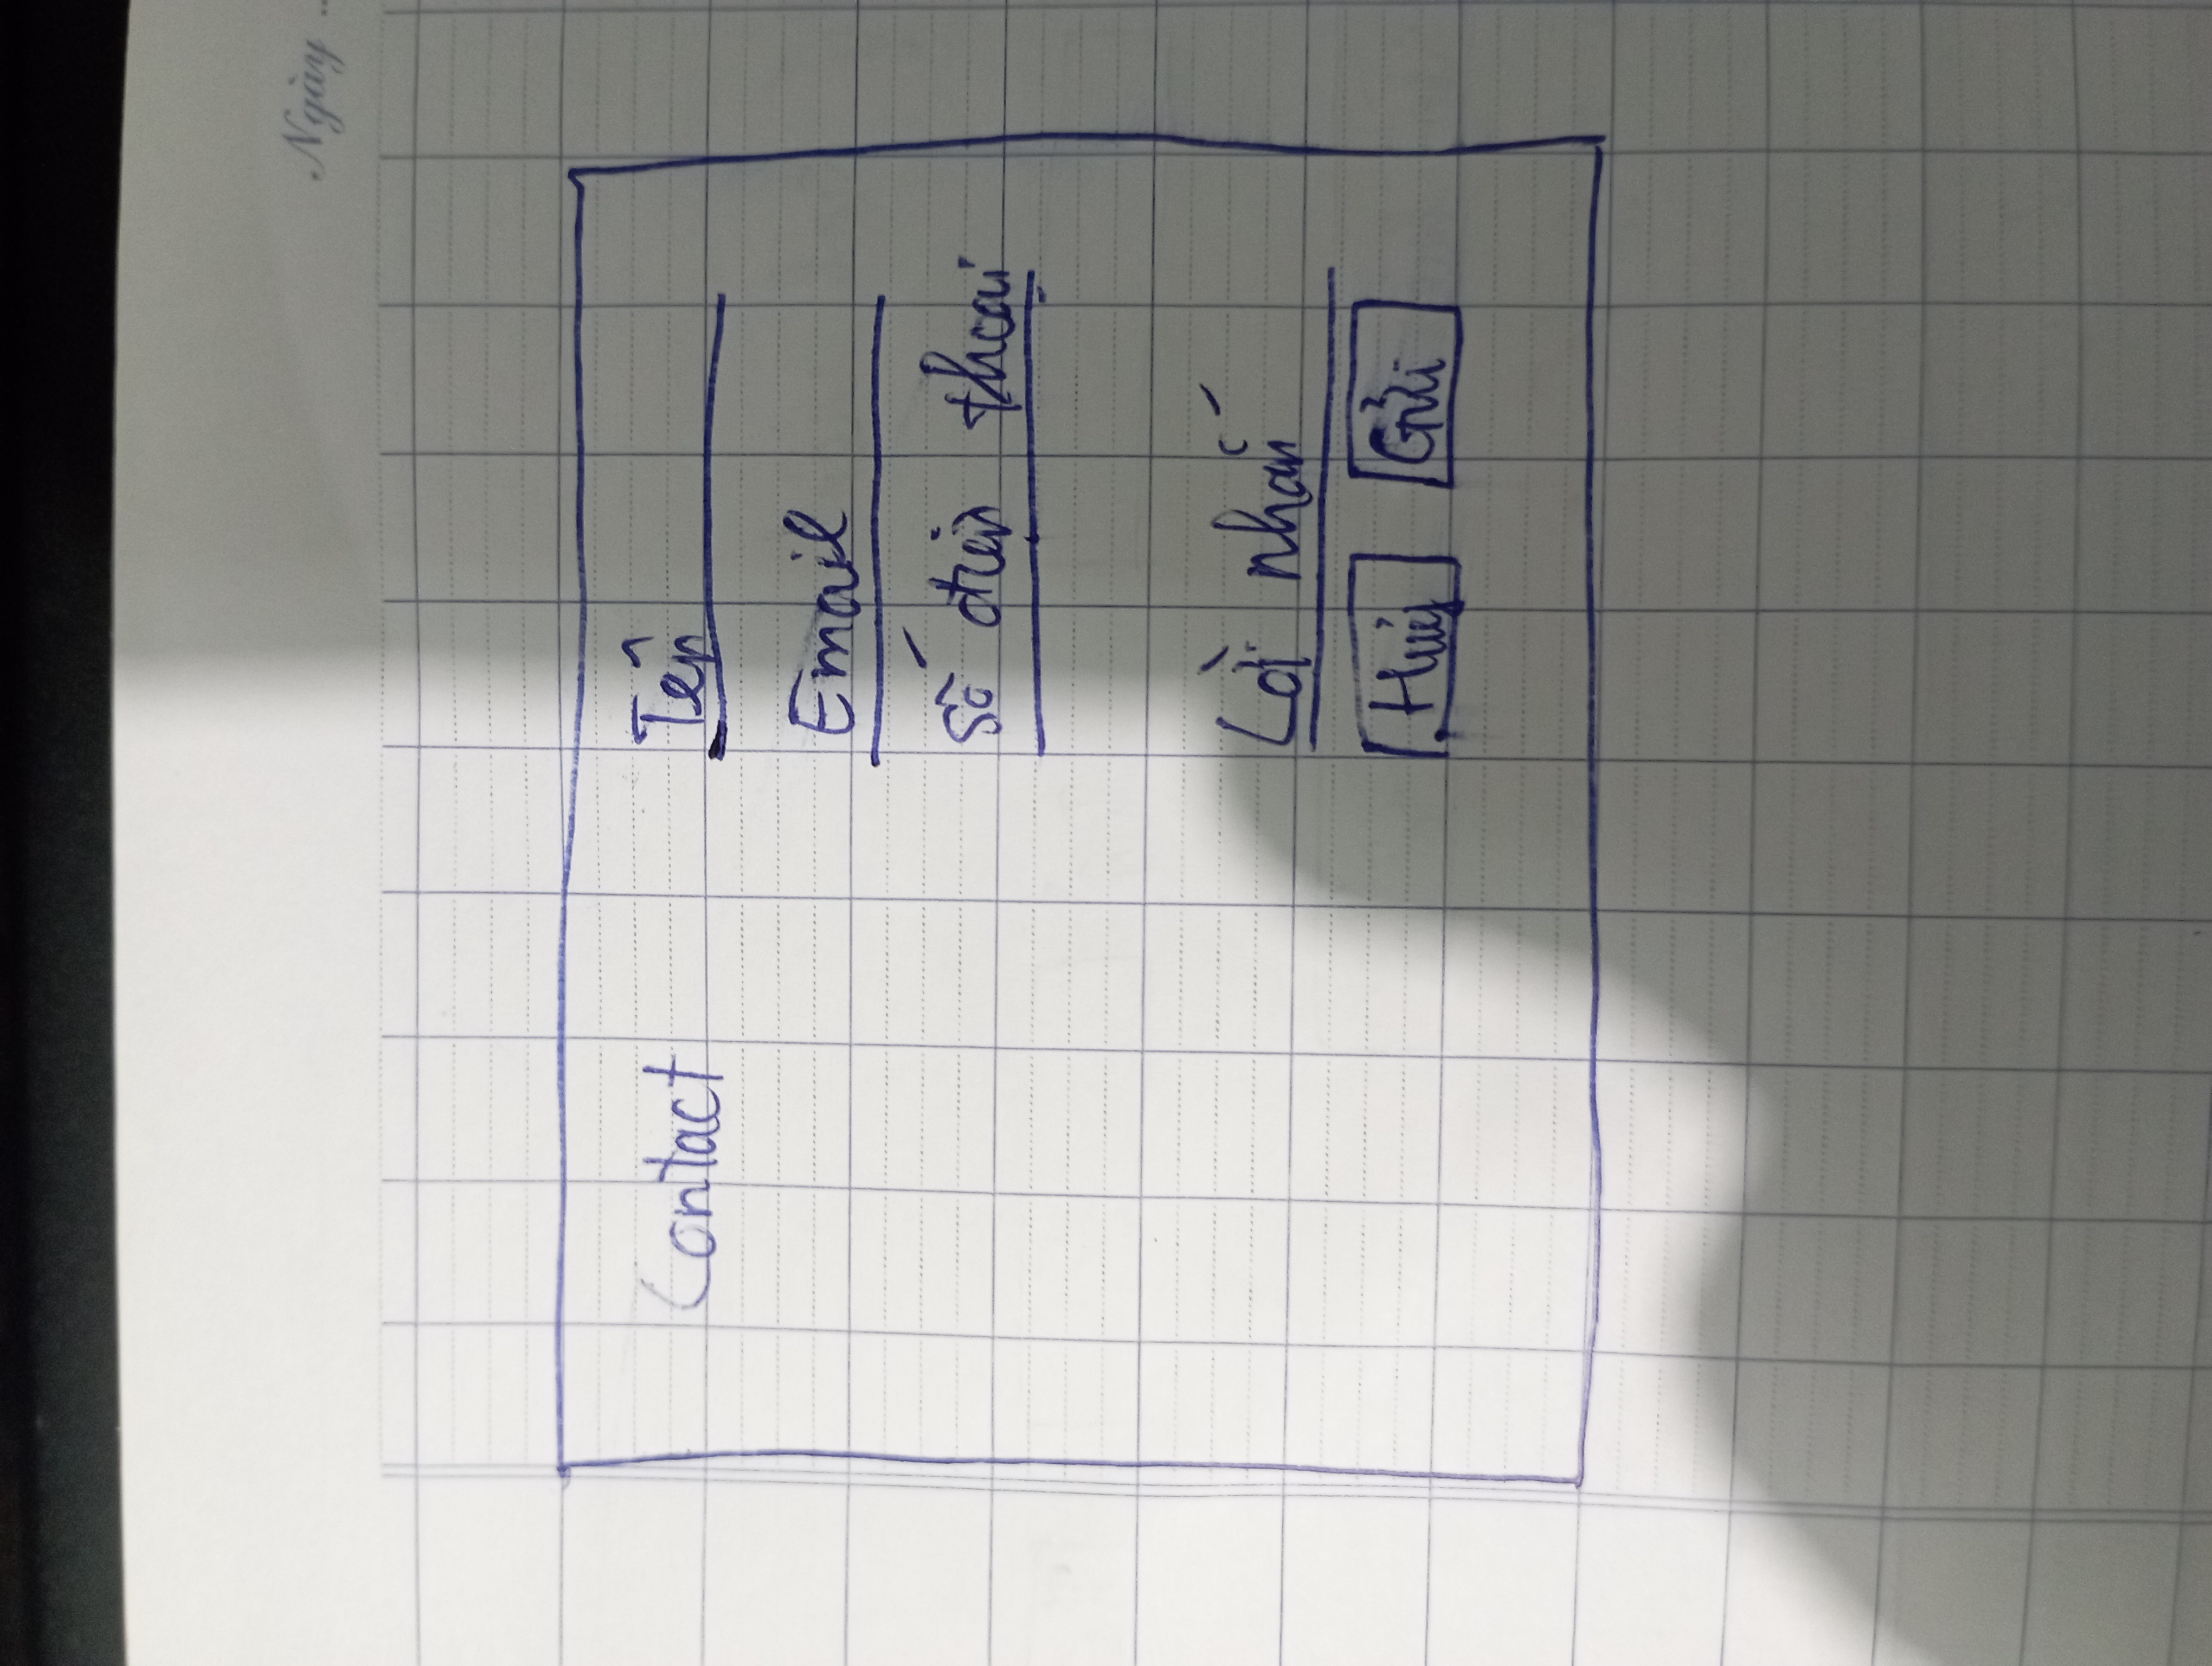 Ngày ..
Contact
Tên
Email
Số điện thoại
Lời nhắn
Huỷ
Gửi